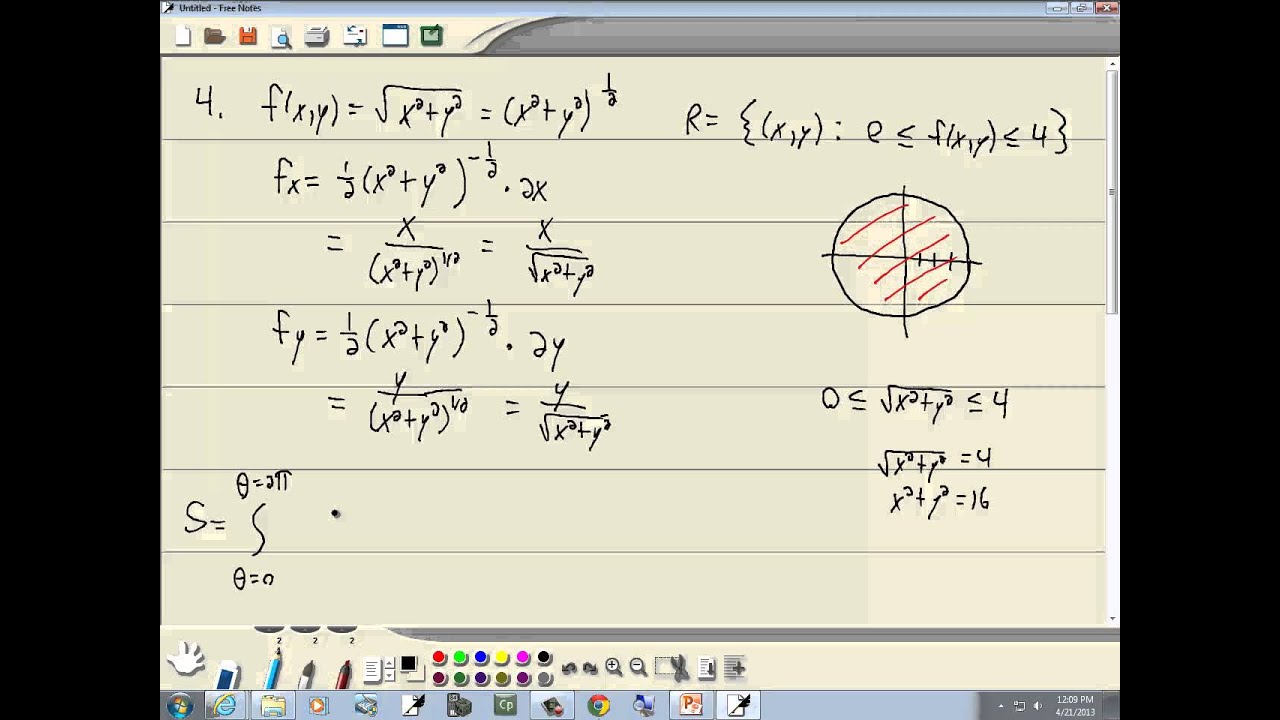 Untitled - Free Notes
4. f(x,y) = √x²+y² = (x²+y²)^1/2
R = {(x,y) : 0 ≤ f(x,y) ≤ 4}
fx = 1/2 (x²+y²)^-1/2 · 2x
= x/(x²+y²)^1/2 = x/√x²+y²
fy = 1/2 (x²+y²)^-1/2 · 2y
= y/(x²+y²)^1/2 = y/√x²+y²
0 ≤ √x²+y² ≤ 4
√x²+y² = 4
x²+y² = 16
θ=2π
S = ∫
θ=0
2 2 2
Cp
12:09 PM
4/21/2013